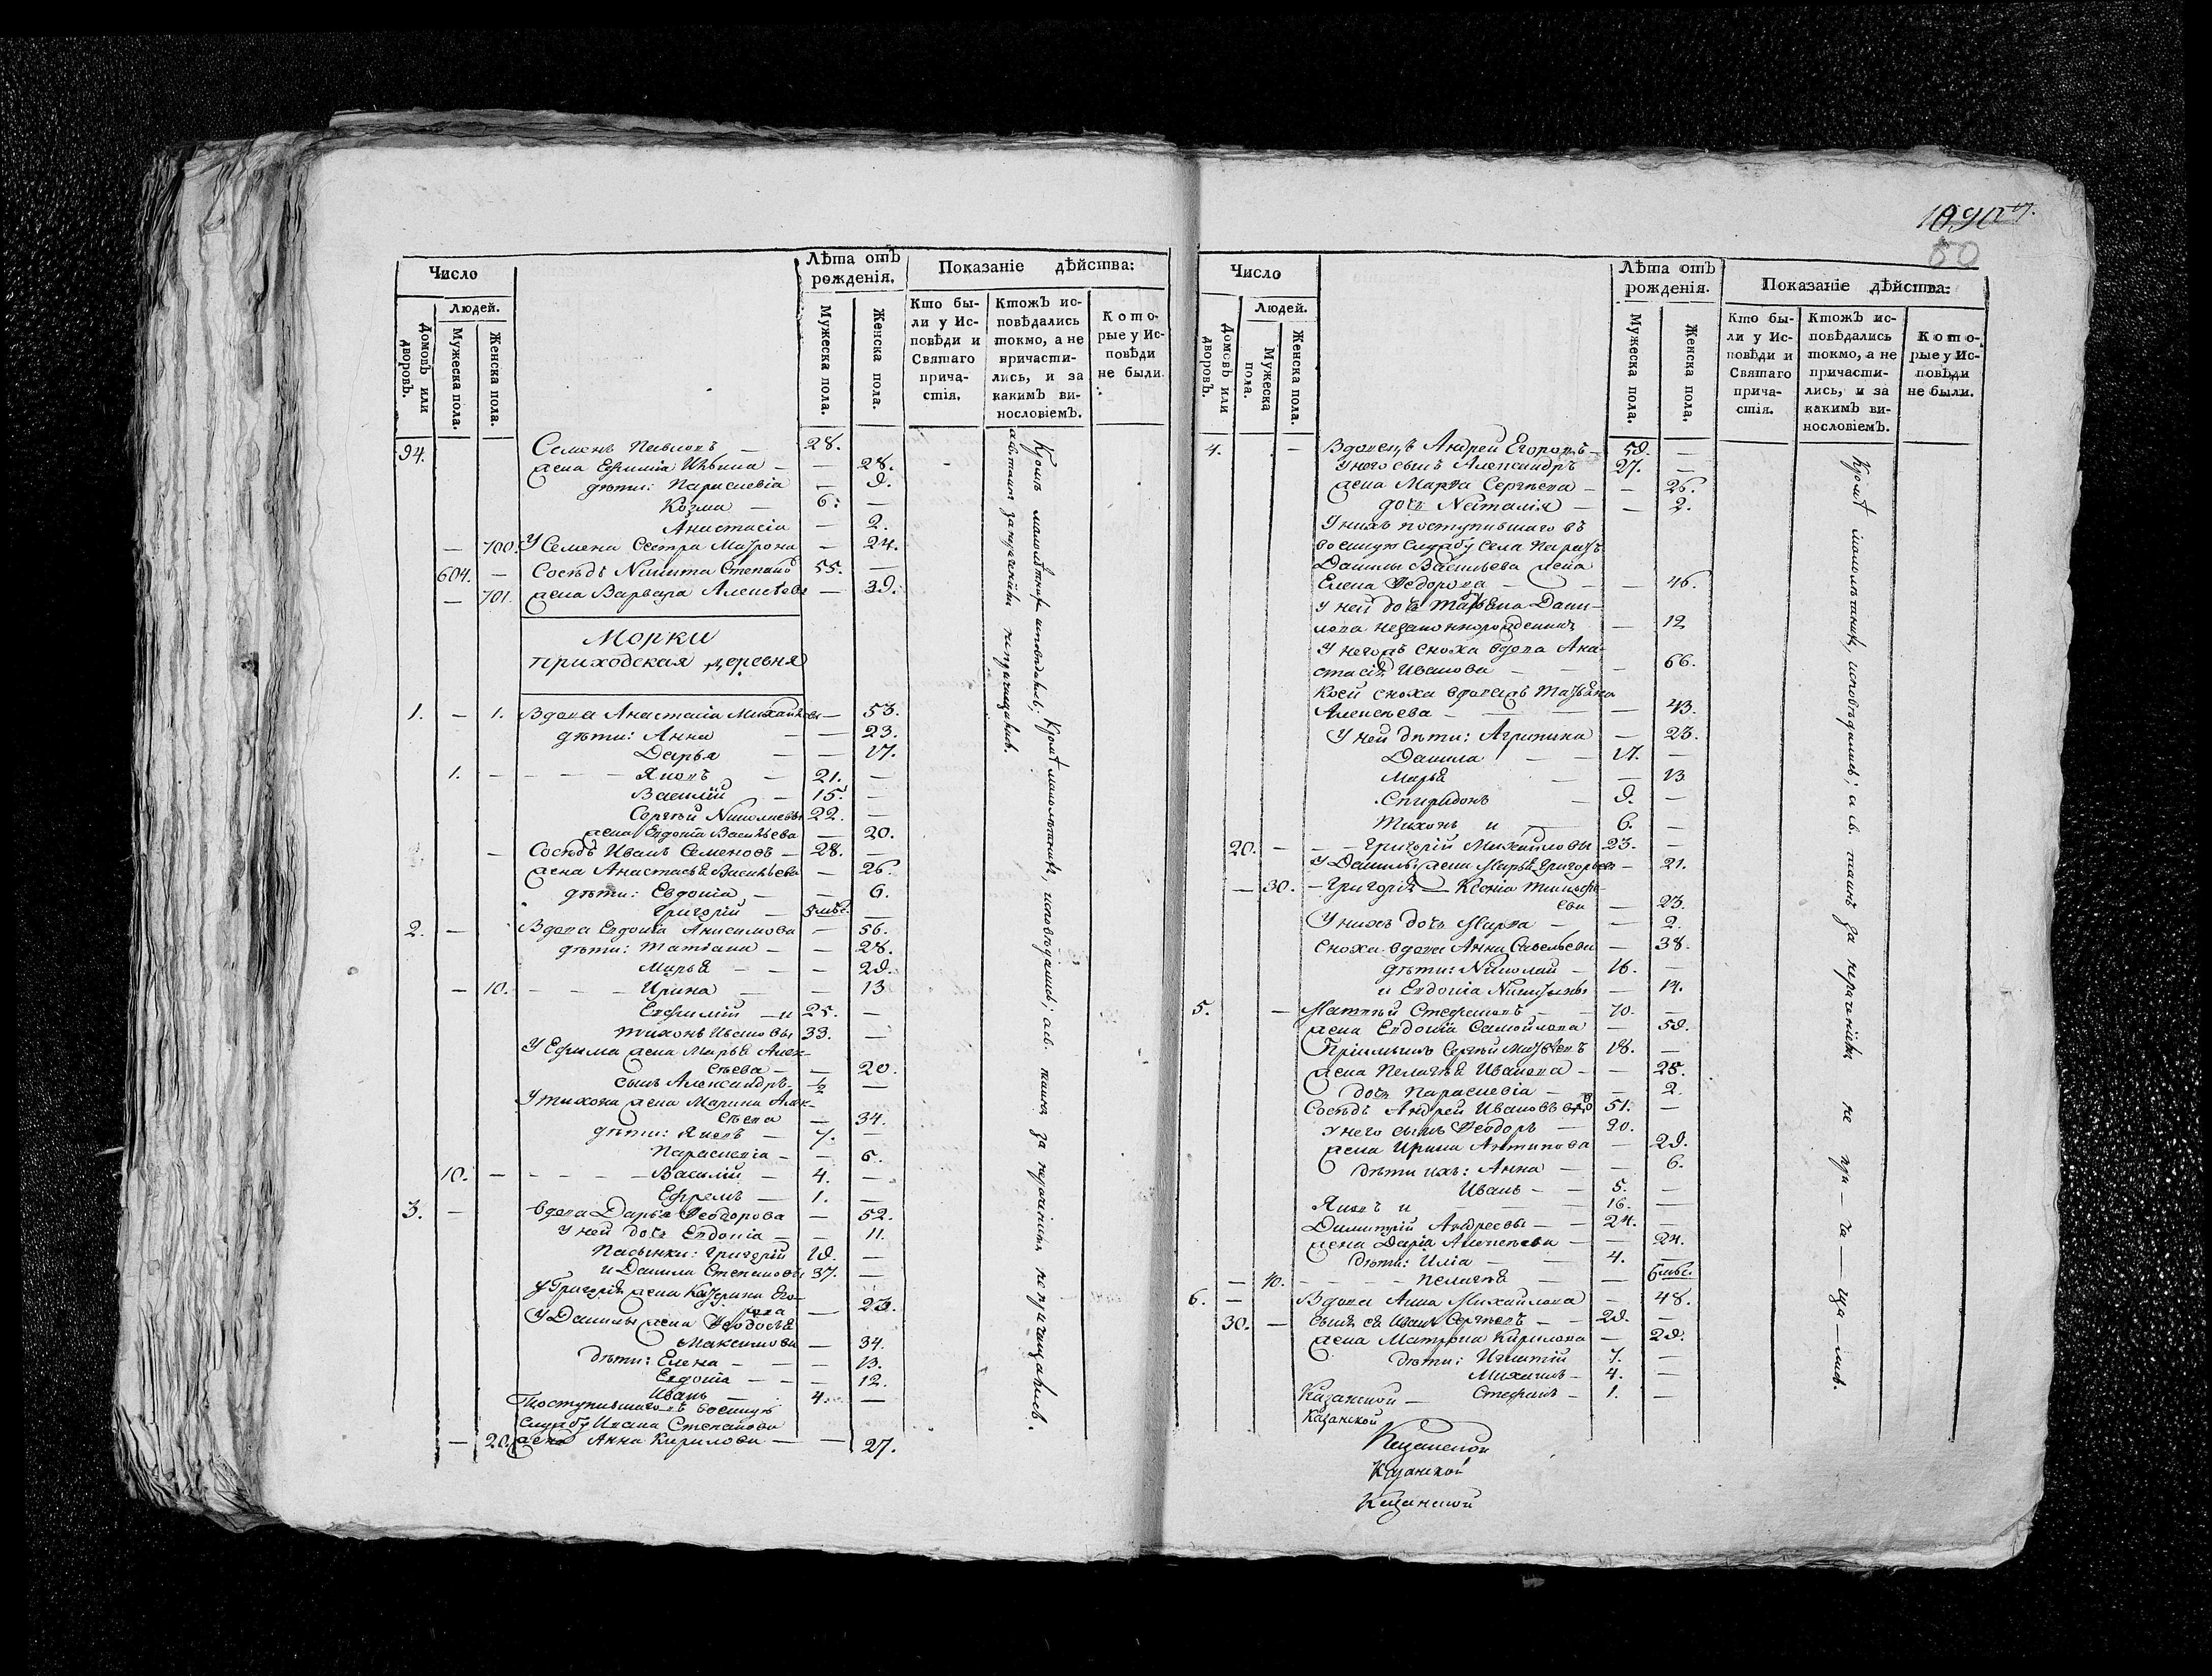 Число
Людей.
Домовъ или дворовъ.
Мужеска пола.
Женска пола.
Лѣта отъ рожденія.
Мужеска пола.
Женска пола.
Показаніе дѣйства:
Кто бы-
ли у Ис-
повѣди и
Святаго
прича-
стія.
Ктожъ ис-
повѣдались
токмо, а не
причасти-
лись, и за
какимъ ви-
нословіемъ.
Кото-
рые у Ис-
повѣди
не были.
94. Семенъ Павловъ — 28.
жена Ефимія — 28.
дѣти: Параскевія — 9.
Козма — 6. —
Анастасія — 2.
— 700. У Семена сестра Матрона — 24.
604. — Сосѣдъ Никита Степановъ 55. —
— 701. жена Варвара Алексѣева — 39.
Морки
приходская деревня
1. — 1. Вдова Анастасія Михайлова — 53.
дѣти: Анна — — 23.
Дарья — 17.
1. — — — — Яковъ — 21. —
Василій — 15. —
Сергѣй Николаевы 22. —
жена Евдокія Васильева — 20.
— Сосѣдъ Иванъ Семеновъ — 28. —
жена Анастасья Васильева — 26.
дѣти: Евдокія — 6.
Григорій — 5 мѣс. —
2. — Вдова Евдокія Анисимова — 56.
дѣти: Татіана — — 28.
Марья — — — 29.
— 10. — — — Ирина — — 13
Евфимій — и 25. —
Тихонъ Ивановы 33. —
У Ефима жена Марья Алек-
сѣева — — 20.
сынъ Александръ — ½ —
У Тихона жена Марина Алек-
сѣева — 34.
дѣти: Яковъ — 7. —
Параскевія — — 6.
10. — — — — Василій — 4. —
Ефремъ — 1. —
3. — Вдова Дарья Ѳеодорова — 52.
У ней дочь Евдокія — — 11.
Пасынки: Григорій 19. —
и Данила Степановы 37. —
У Григорія жена Катерина Его-
рова — 23.
У Данилы жена Ѳеодосья
Максимова — 34.
дѣти: Елена — — — 13.
Евдокія — — — 12.
Иванъ — 4. —
Поступившаго въ военную
службу Ивана Степанова
— 20. жена Анна Кирилова — — 27.
Кромѣ малолѣтнихъ исповѣдались;
а св. таинъ за нераченіемъ не причащались.
Кромѣ малолѣтнихъ, исповѣдались; а св. таинъ за нераченіемъ не причащались.
50
Число
Людей.
Домовъ или дворовъ.
Мужеска пола.
Женска пола.
Лѣта отъ рожденія.
Мужеска пола.
Женска пола.
Показаніе дѣйства:
Кто бы-
ли у Ис-
повѣди и
Святаго
прича-
стія.
Ктожъ ис-
повѣдались
токмо, а не
причасти-
лись, и за
какимъ ви-
нословіемъ.
Кото-
рые у Ис-
повѣди
не были.
4. — Вдовецъ Андрей Егоровъ — 59. —
У него сынъ Александръ 27. —
жена Марѳа Сергѣева — — 26.
дочь Наталія — — 2.
У нихъ поступившаго въ
военную службу села
Данилы Васильева жена
Елена Ѳедорова — — — 46.
У ней дочь Татьяна Дани-
лова незаконнорожденная — 12
У негожъ сноха вдова Ана-
стасія Иванова — — — 66.
Коей сноха вдоважъ Татьяна
Алексѣева — — — 43.
У ней дѣти: Агрипина — 23.
Данила — — 17. —
Марья — 13
Спиридонъ — 9. —
Тихонъ и — 6. —
20. — — — Григорій Михайловы 23. —
У Данилы жена Марья Григорьева — 21.
— 30. — Григорія — Ксенія Тимоѳе-
ева — 23.
У нихъ дочь Марѳа — — 2.
Сноха вдова Анна Савельева — 38.
дѣти: Николай — 16. —
и Евдокія Никитины — 14.
5. — Матвѣй Стефановъ — — 70. —
жена Евдокія Самойлова — 59.
Пріимышъ Сергѣй Матвѣевъ 18. —
жена Пелагѣя Иванова — — 25.
дочь Параскевія — — 2.
Сосѣдъ Андрей Ивановъ 51. —
у него сынъ Ѳеодоръ — 30. —
жена Ирина Антипова — 29.
дѣти ихъ: Анна — — 6.
Иванъ — — 5. —
Яковъ и — — — 16. —
Димитрій Андреевы — — 24. —
жена Дарія Алексѣева — — 24.
дѣти: Илія — — 4. —
— 40. — — — Пелагѣя — — 6 мѣс.
6. — Вдова Анна Михайлова — 48.
30. — сынъ ея Иванъ Сергѣевъ — — 29. —
жена Матрона Кирилова — 29.
дѣти: Игнатій 7. —
Михаилъ — 4. —
Казанской — Стефанъ — 1. —
Казанской
Казанской
Казанской
Казанской
Кромѣ малолѣтнихъ, исповѣдались; а св. таинъ за нераченіемъ не при — ча — ща — лись.